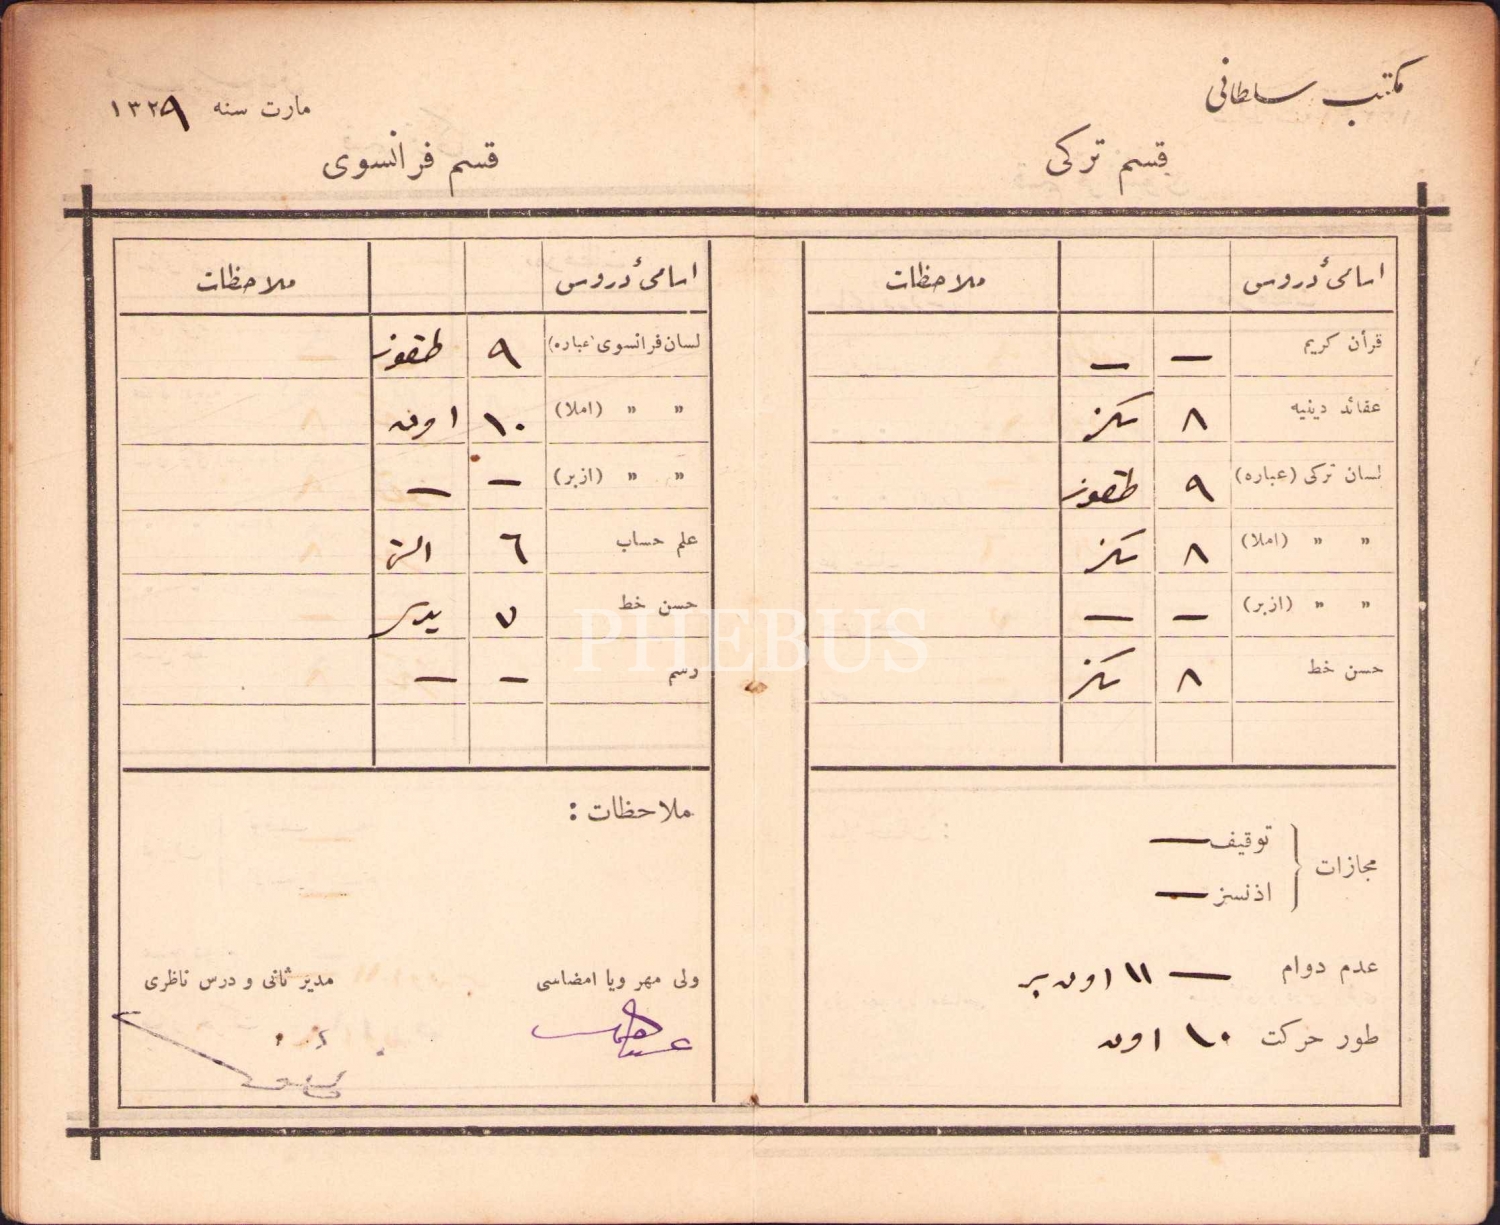 مكتب سلطانی
قسم تركی
اسامیٔ دروس ملاحظات
قرأن كریم — —
عقائد دینیه ٨ سكز
لسان تركی (عباره) ٩ طقوز
» » (املا) ٨ سكز
» » (ازبر) — —
حسن خط ٨ سكز
مجازات
توقیف —
اذنسز —
عدم دوام — ١١ اون بر
طور حركت ١٠ اون
مارت سنه ١٣٢٩
قسم فرانسوی
اسامیٔ دروس ملاحظات
لسان فرانسوی (عباره) ٩ طقوز
» » (املا) ١٠ اون
» » (ازبر) — —
علم حساب ٦ التی
حسن خط ٧ یدی
رسم — —
ملاحظات :
ولی مهر ویا امضاسی
مدیر ثانی و درس ناظری
PHEBUS